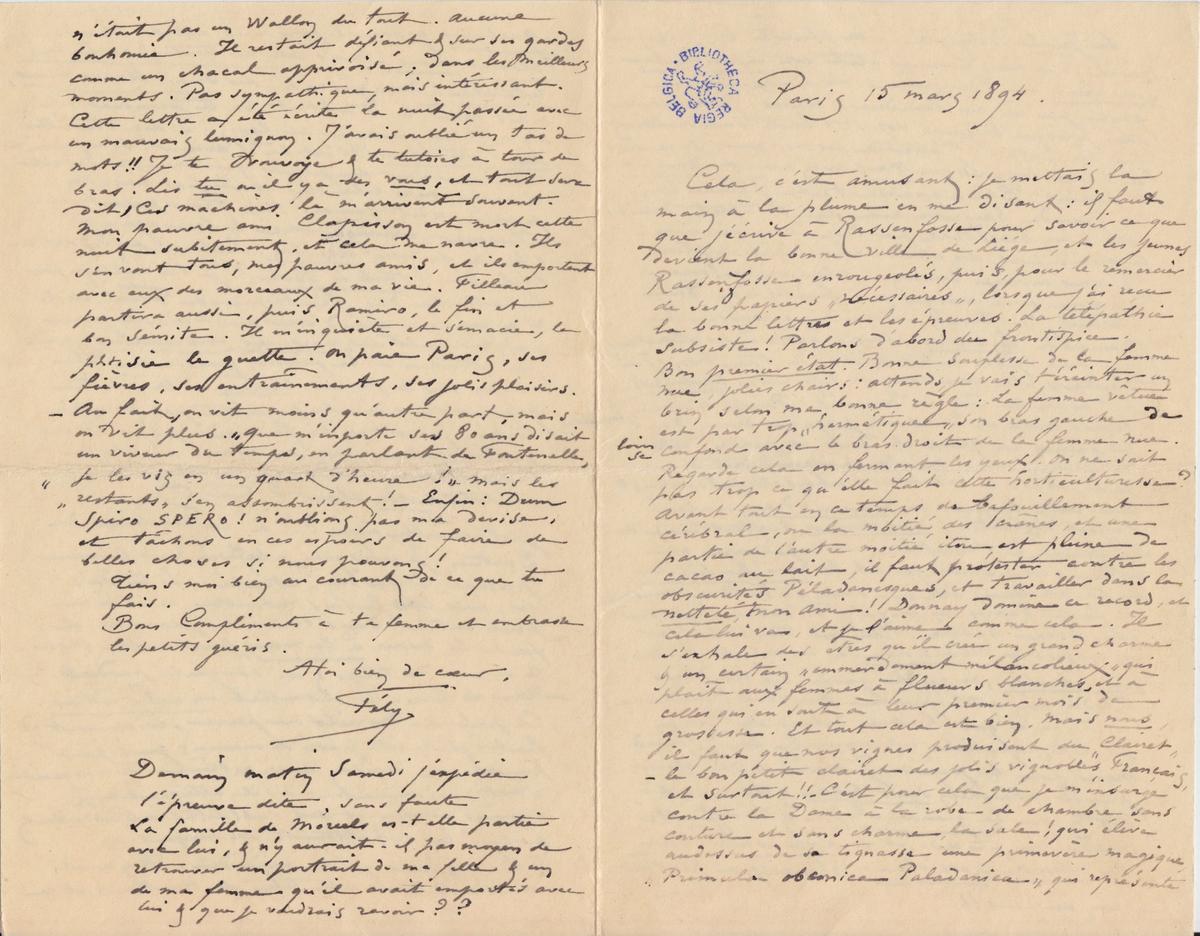 n'était pas un Wallon du tout. Aucune
bonhomie. Il restait défiant & sur ses gardes
comme un chacal apprivoisé, dans les meilleurs
moments. Pas sympathique, mais intéressant.
Cette lettre a été écrite la nuit passée avec
un mauvais lumignon. J'avais oublié un tas de
mots!! Je te vouvoye & te tutoies à tour de
bras. Lis tu où il y a des vous, et tout sera
dit! Ces machines là m'arrivent souvent.
Mon pauvre ami Clapisson est mort cette
nuit subitement, et cela me navre. Ils
s'en vont tous, mes pauvres amis, et ils emportent
avec eux des morceaux de ma vie. Filleau
partira aussi, puis Ramiro, le fin et
bon sémite. Il m'inquiète et s'émacie, la
phtisie le guette. On paie Paris, ses
fièvres, ses entraînements, ses jolis plaisirs.
– Au fait, on vit moins qu'autre part, mais
on vit plus. „Que m'importe ses 80 ans disait
un viveur du temps, en parlant de Fontenelle,
„ je les vis en un quart d'heure!„ Mais les
„restants„ s'en assombrissent! – Enfin: Dum
Spiro SPERO! n'oublions pas ma devise,
et tâchons en ces espoirs de faire de
belles choses si nous pouvons!
Tiens moi bien au courant de ce que tu
fais.
Bons Compliments à ta femme et embrasse
les petits guéris.
A toi bien de cœur,
Fély
Demain matin Samedi j'expédie
l'épreuve dite, sans faute
La famille de Mörels est-elle partie
avec lui, & n'y aurait-il pas moyen de
retrouver un portrait de ma fille & un
de ma femme qu'il avait emportés avec
lui & que je voudrais revoir??
BIBLIOTHECA REGIA BELGICA
Paris 15 mars 1894.
Cela, c'est amusant: je mettais la
main à la plume en me disant: il faut
que j'écrive à Rassenfosse pour savoir ce que
devient la bonne ville de Liège, et les jeunes
Rassenfosse enrougeolés, puis, pour le remercier
de ses papiers „nécessaires„, lorsque j'ai reçu
ta bonne lettres et les épreuves! La télépathie
subsiste! Parlons d'abord du frontispice.
Bon premier état. Bonne souplesse de la femme
nue, jolies chairs: attends je vais t'éreinter un
brin selon ma bonne règle: La femme vêtue
est par trop „hermétique„ son bras gauche de
loin se confond avec le bras droit de la femme nue.
Regarde cela en fermant les yeux. On ne sait
pas trop ce qu'elle fait cette horticulturesse?
Avant tout en ce temps de bafouillement
cérébral, où la moitié des crânes, et une
partie de l'autre moitié itou, est pleine de
cacao au lait, il faut protester contre les
obscurités Péladanesques, et travailler dans la
netteté, mon ami!! Donnay domine ce record, et
cela lui vas, et je l'aime comme cela. Il
s'exhale des êtres qu'il crée un grand charme
& un certain „emmerdoment mélancolieux„ qui
plaît aux femmes à flueurs blanches, et à
celles qui en sont à leur premier mois de
grossesse. Et tout cela est bien. Mais nous,
il faut que nos vignes produisent du „Clairet„
– le bon petit clairet des jolis vignobles Français,
et surtout!! C'est pour cela que je m'insurge
contre la Dame à la robe de chambre sans
couture et sans charme, la sale! qui élève
audessus de sa tignasse une primevère magique
„Primula obconica Paladanica„ qui représente